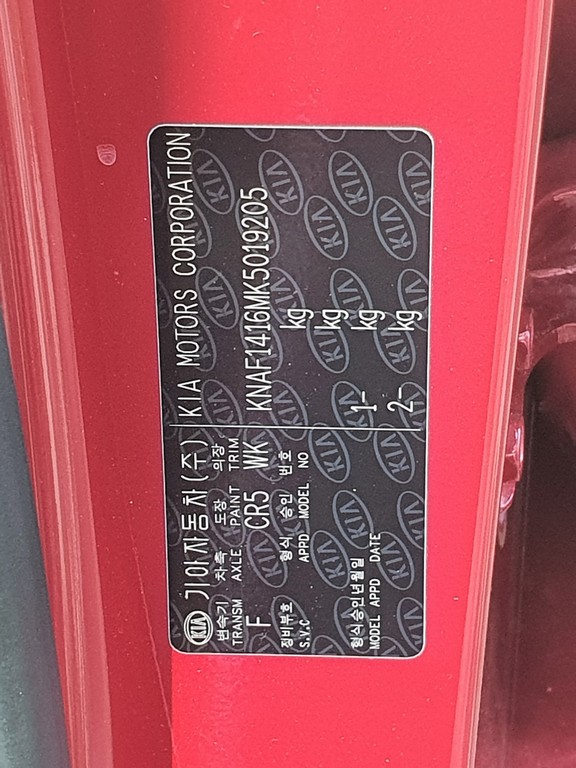 KIA 기아자동차(주) KIA MOTORS CORPORATION
변속기 차축 도장 의장
TRANSM AXLE PAINT TRIM
F CR5 WK KNAF1416MK5019205
정비부호 형식 승인 번호 kg
S.V.C APPD MODEL NO
kg
형식승인년월일 1- kg
MODEL APPD DATE
2- kg